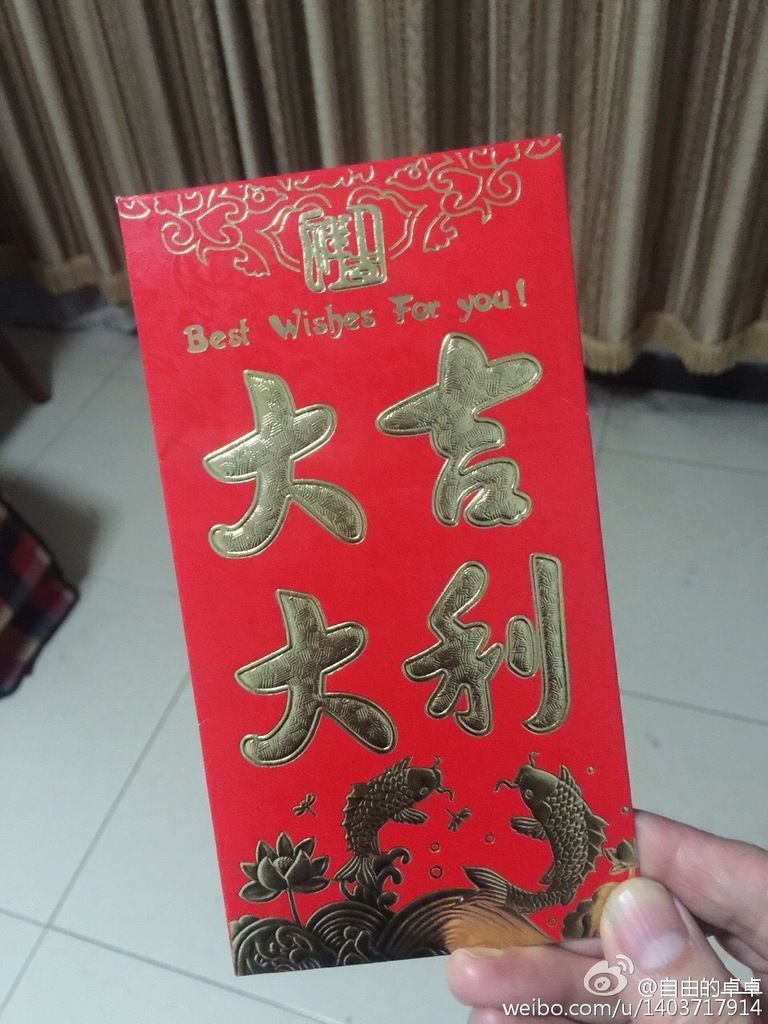 Best Wishes For you!
大吉
大利
@自由的卓卓
weibo.com/u/1403717914